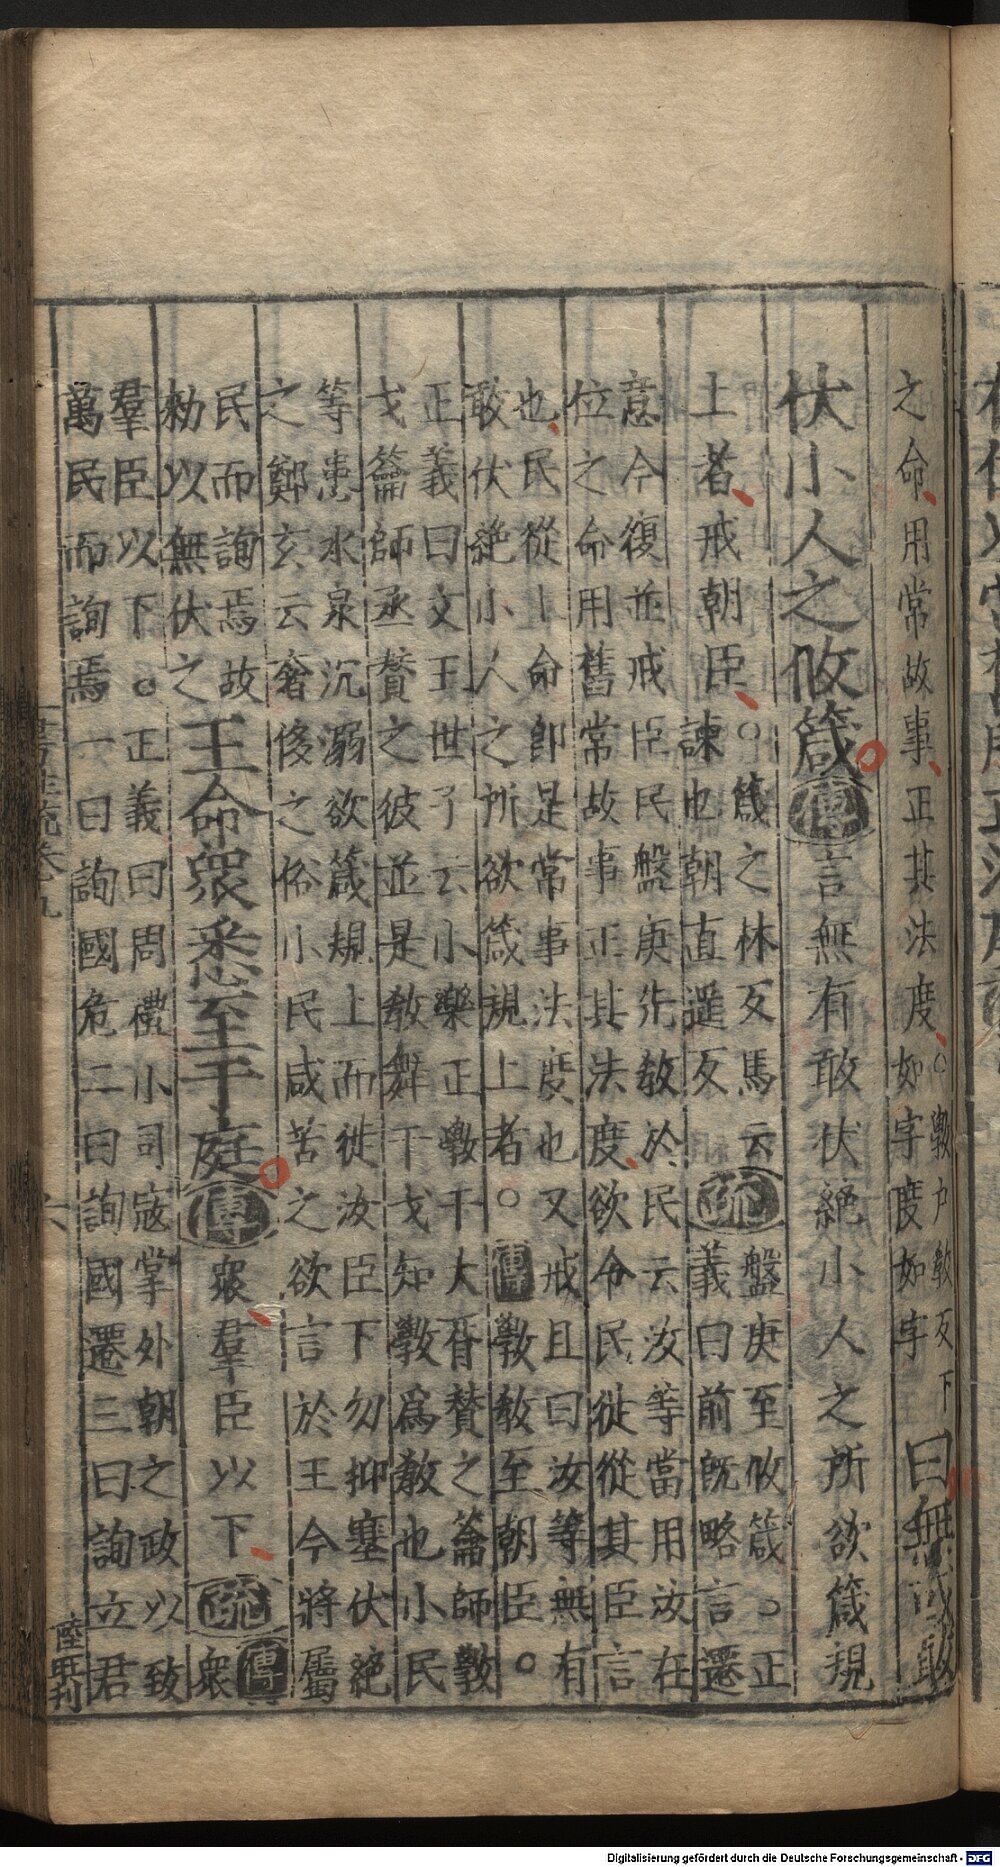 之命、用常故事、正其法度、
○斆户敎反下
如字度如字
曰無或敢
伏小人之攸箴傳言無有敢伏絶小人之所欲箴規
土者、戒朝臣、
○箴之林反馬云
諫也朝直遥反
疏
盤庚至攸箴○正
義曰前旣略言遷
意今復並戒臣民盤庚先敎於民云汝等當用汝在
位之命用舊常故事正其法度欲令民徙從其臣言
也民從上命卽是常事法度也又戒且曰汝等無有
敢伏絶小人之所欲箴規上者○傳斆敎至朝臣○
正義曰文王世子云小樂正斆干大胥贊之籥師斆
戈籥師丞贊之彼並是敎舞干戈知斆爲敎也小民
等患水泉沉溺欲箴規上而徙汝臣下勿抑塞伏絶
之鄭玄云奢侈之俗小民咸苦之欲言於王今將屬
民而詢焉故
勑以無伏之
王命衆悉至于庭傳衆羣臣以下疏
傳
衆
羣臣以下○正義曰周禮小司寇掌外朝之政以致
萬民而詢焉一曰詢國危二曰詢國遷三曰詢立君
書注疏卷九
六
Digitalisierung gefördert durch die Deutsche Forschungsgemeinschaft - DFG